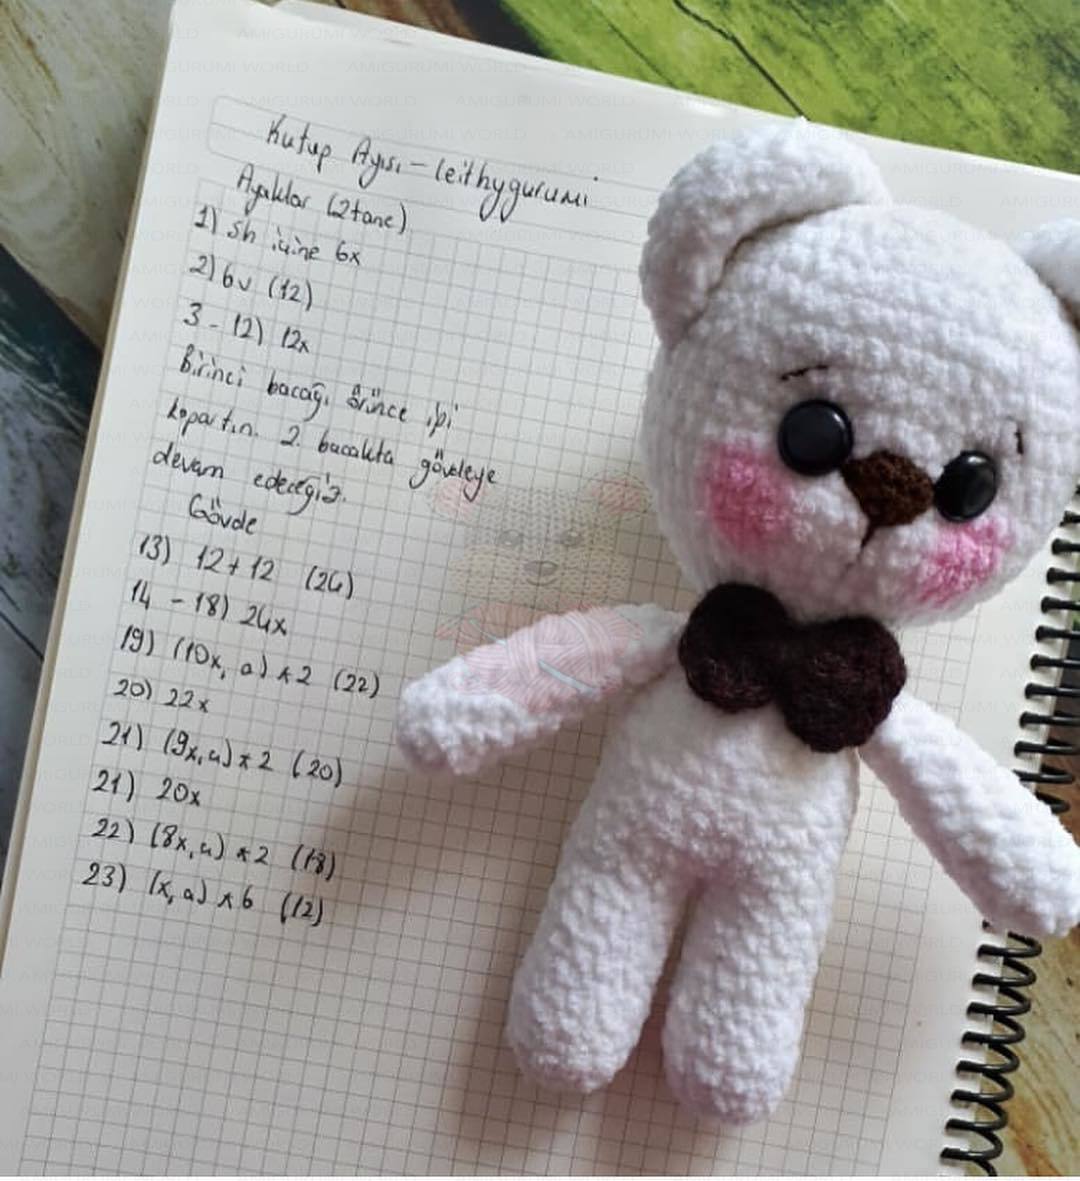 AMIGURUMI WORLD
Kutup Ayısı - leithygurumi
Ayaklar (2 tane)
1) Sh içine 6x
2) 6v (12)
3 - 12) 12x
Birinci bacağı örünce ipi
kopartın. 2. bacakta gövdeye
devam edeceğiz.
Gövde
13) 12+12 (24)
14 - 18) 24x
19) (10x, a) *2 (22)
20) 22x
21) (9x, a) *2 (20)
21) 20x
22) (8x, a) *2 (18)
23) (x, a) *6 (12)